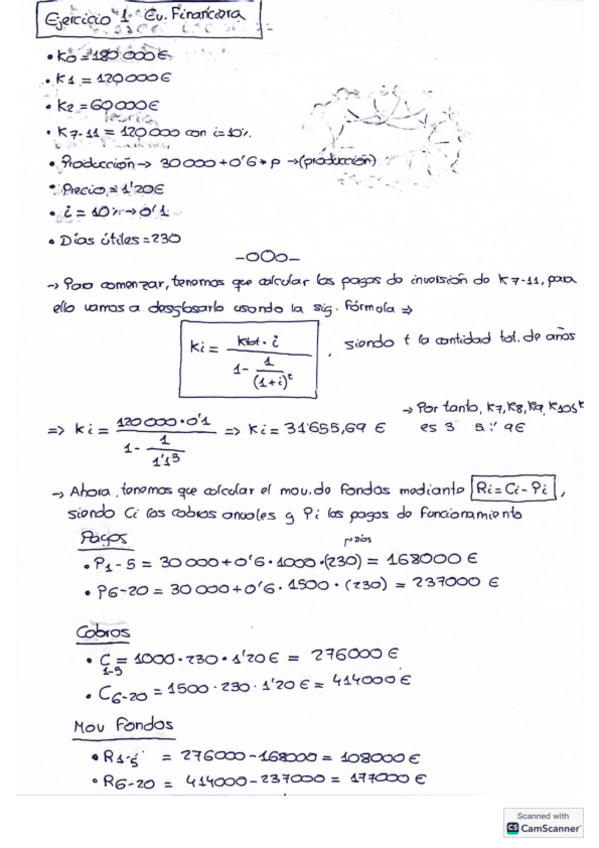 Ejercicio 1 Ev. Financiera
• K0 = 180 000 €
• K1 = 120 000 €
• K2 = 60 000 €
• K7-11 = 120 000 con i=10%
• Producción → 30 000 + 0'6 * p → (producción)
• Precio = 1'20 €
• i = 10% → 0'1
• Días útiles = 230
-oOo-
→ Para comenzar, tenemos que calcular los pagos de inversión de K7-11, para
ello vamos a desglosarlo usando la sig. fórmula ⇒
Ki = Ktot · i / (1 - 1/(1+i)^t) , siendo t la cantidad tot. de años
⇒ Ki = 120 000 · 0'1 / (1 - 1/1'1^5) ⇒ Ki = 31'655,69 €
→ Por tanto, K7, K8, K9, K10
es 3 9 €
→ Ahora, tenemos que calcular el mov. de fondos mediante Ri = Ci - Pi ,
siendo Ci los cobros anuales y Pi los pagos de funcionamiento
Pagos
• P1-5 = 30 000 + 0'6 · 1000 · (230) = 168000 €
• P6-20 = 30 000 + 0'6 · 1500 · (230) = 237000 €
Cobros
• C1-5 = 1000 · 230 · 1'20 € = 276000 €
• C6-20 = 1500 · 230 · 1'20 € = 414000 €
Mov Fondos
• R1-5 = 276000 - 168000 = 108000 €
• R6-20 = 414000 - 237000 = 177000 €
Scanned with
CS CamScanner